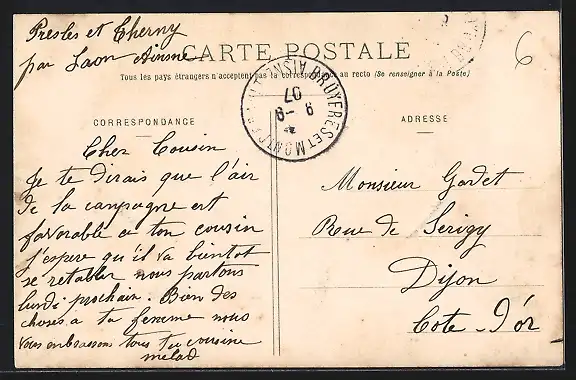 Presles et Cherny
par Laon Aisne
CARTE POSTALE
6
Tous les pays étrangers n'acceptent pas la correspondance au recto (Se renseigner à la Poste)
BRUYERES ET MONTB AISNE
9 -9
07
CORRESPONDANCE
ADRESSE
Cher Cousin
Je te dirais que l'air
de la campagne est
favorable a ton cousin
j'espere qu'il va bientot
se retablir nous partons
lundi prochain. Bien des
choses a ta femme nous
vous embrassons tous ta cousine
Monsieur Godet
Rue de Serigy
Dijon
Cote-d'or